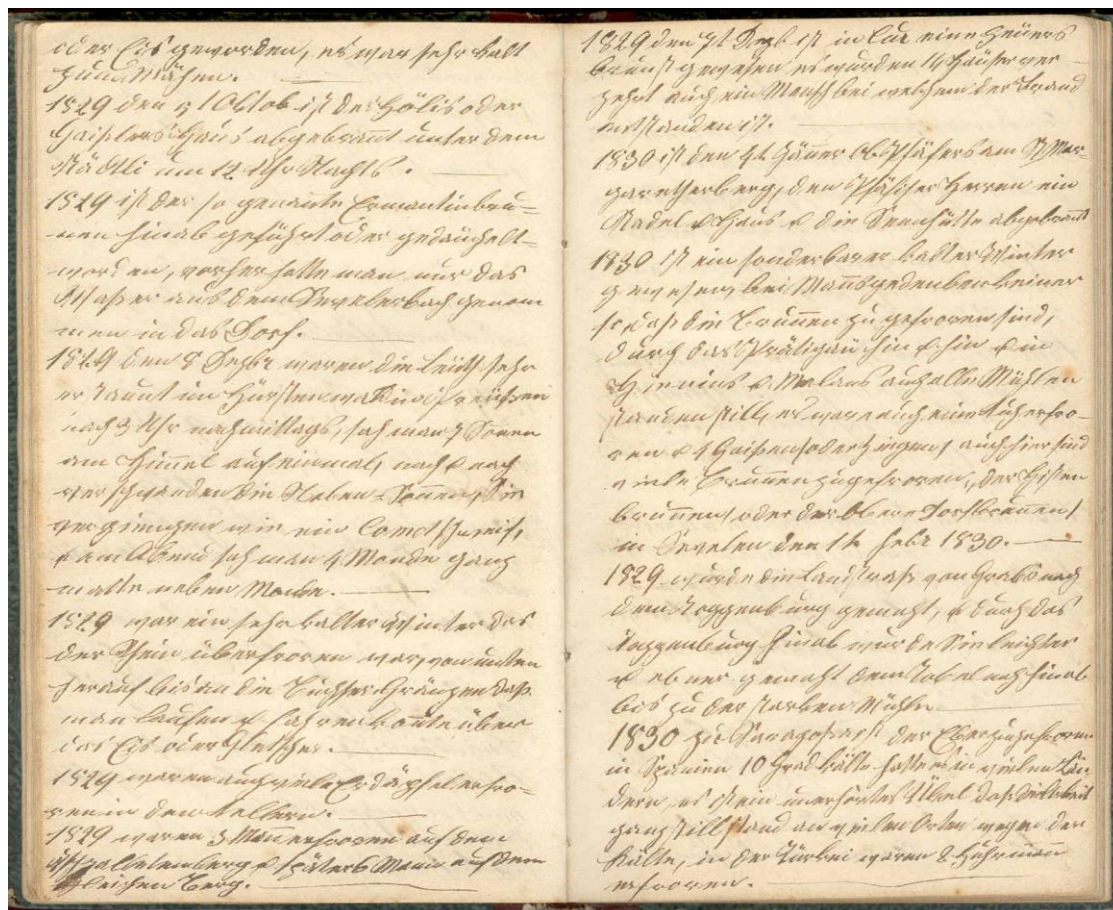 oder Eis geworden, es war sehr kalt
zum Mähen.
1829 den 51 Octob ist des Hölis oder
Haislers Haus abgebrannt unter dem
Städtli um 12 Uhr Nachts.
1829 ist der so genannte Ermantinbru=
nen hinab geführt oder gedäuchelt=
worden, vorher hatte man nur das
Wasser aus dem Sevelerbach genom
men in das Dorf.
1829 den 8 Dezbr waren die Leüth sehr
erstaunt im Preüßen
nach 3 Uhr nachmittags, sah man 7 Sonnen
am Himel auf einmal, nach & nach
verschwanden die Neben-Sonnen, Sie
vergiengen wie ein Comet
& am Abend sah man 4 Monde ganz
matte neben Monde.
1829 war ein sehr kalter Winter das
der Rhein überfroren war, von unten
herauf bis an die Buchser Gränzen daß
man laufen & fahren konte über
das Eis oder Gletscher.
1829 waren auch viele Erdäpfel erfro=
ren in den Kellern.
1829 waren 3 Mann erfroren auf dem
& später 6 Mann auf dem
gleichen Berg.
1829 den 7t Dezb ist in Cur eine Feüers
brunst gewesen es wurden 14 Häuser ver
zehrt auch ein Mensch bei welchem der Brand
entstanden ist.
1830 ist den 4t Jänner Ob Pfäfers am St Mar=
garetherberg, den Pfäfser Herren ein
Stadel & Haus & die Sennhütte abgebrannt
1830 ist ein sonderbarer kalter Winter
gewesen, bei Mannsgedenken keiner
so, daß die Brunnen zu gefroren sind,
durch das Prätigäu hin & hin & in
Jenins & Malans auch alle Mühlen
standen still, es ware auch eine Kuh erfro-
ren & 4 Gaißen (oder Ziegen) auch hier sind
viele Brunnen zugefroren, der
brunnen (oder der Obere Dorfbrunnen)
in Sevelen den 1t Febr 1830.
1829 wurde die Landstraß von Grabs nach
dem Toggenburg gemacht, & durch das
Toggenburg hinab wurde Sie leichter
& ebner gemacht dem Tobel nach hinab
bis zu der starken Mühle
1830 zu Saragossa ist der Eber zugefroren
in Spanien 10 Grad Kälte hatte es in vielen Län
dern, es ist ein unerhörtes Übel daß die Arbeit
ganz still stand an vielen Orten wegen der
Kälte, in der Türkei waren 2 Fuhrmann
erfroren.